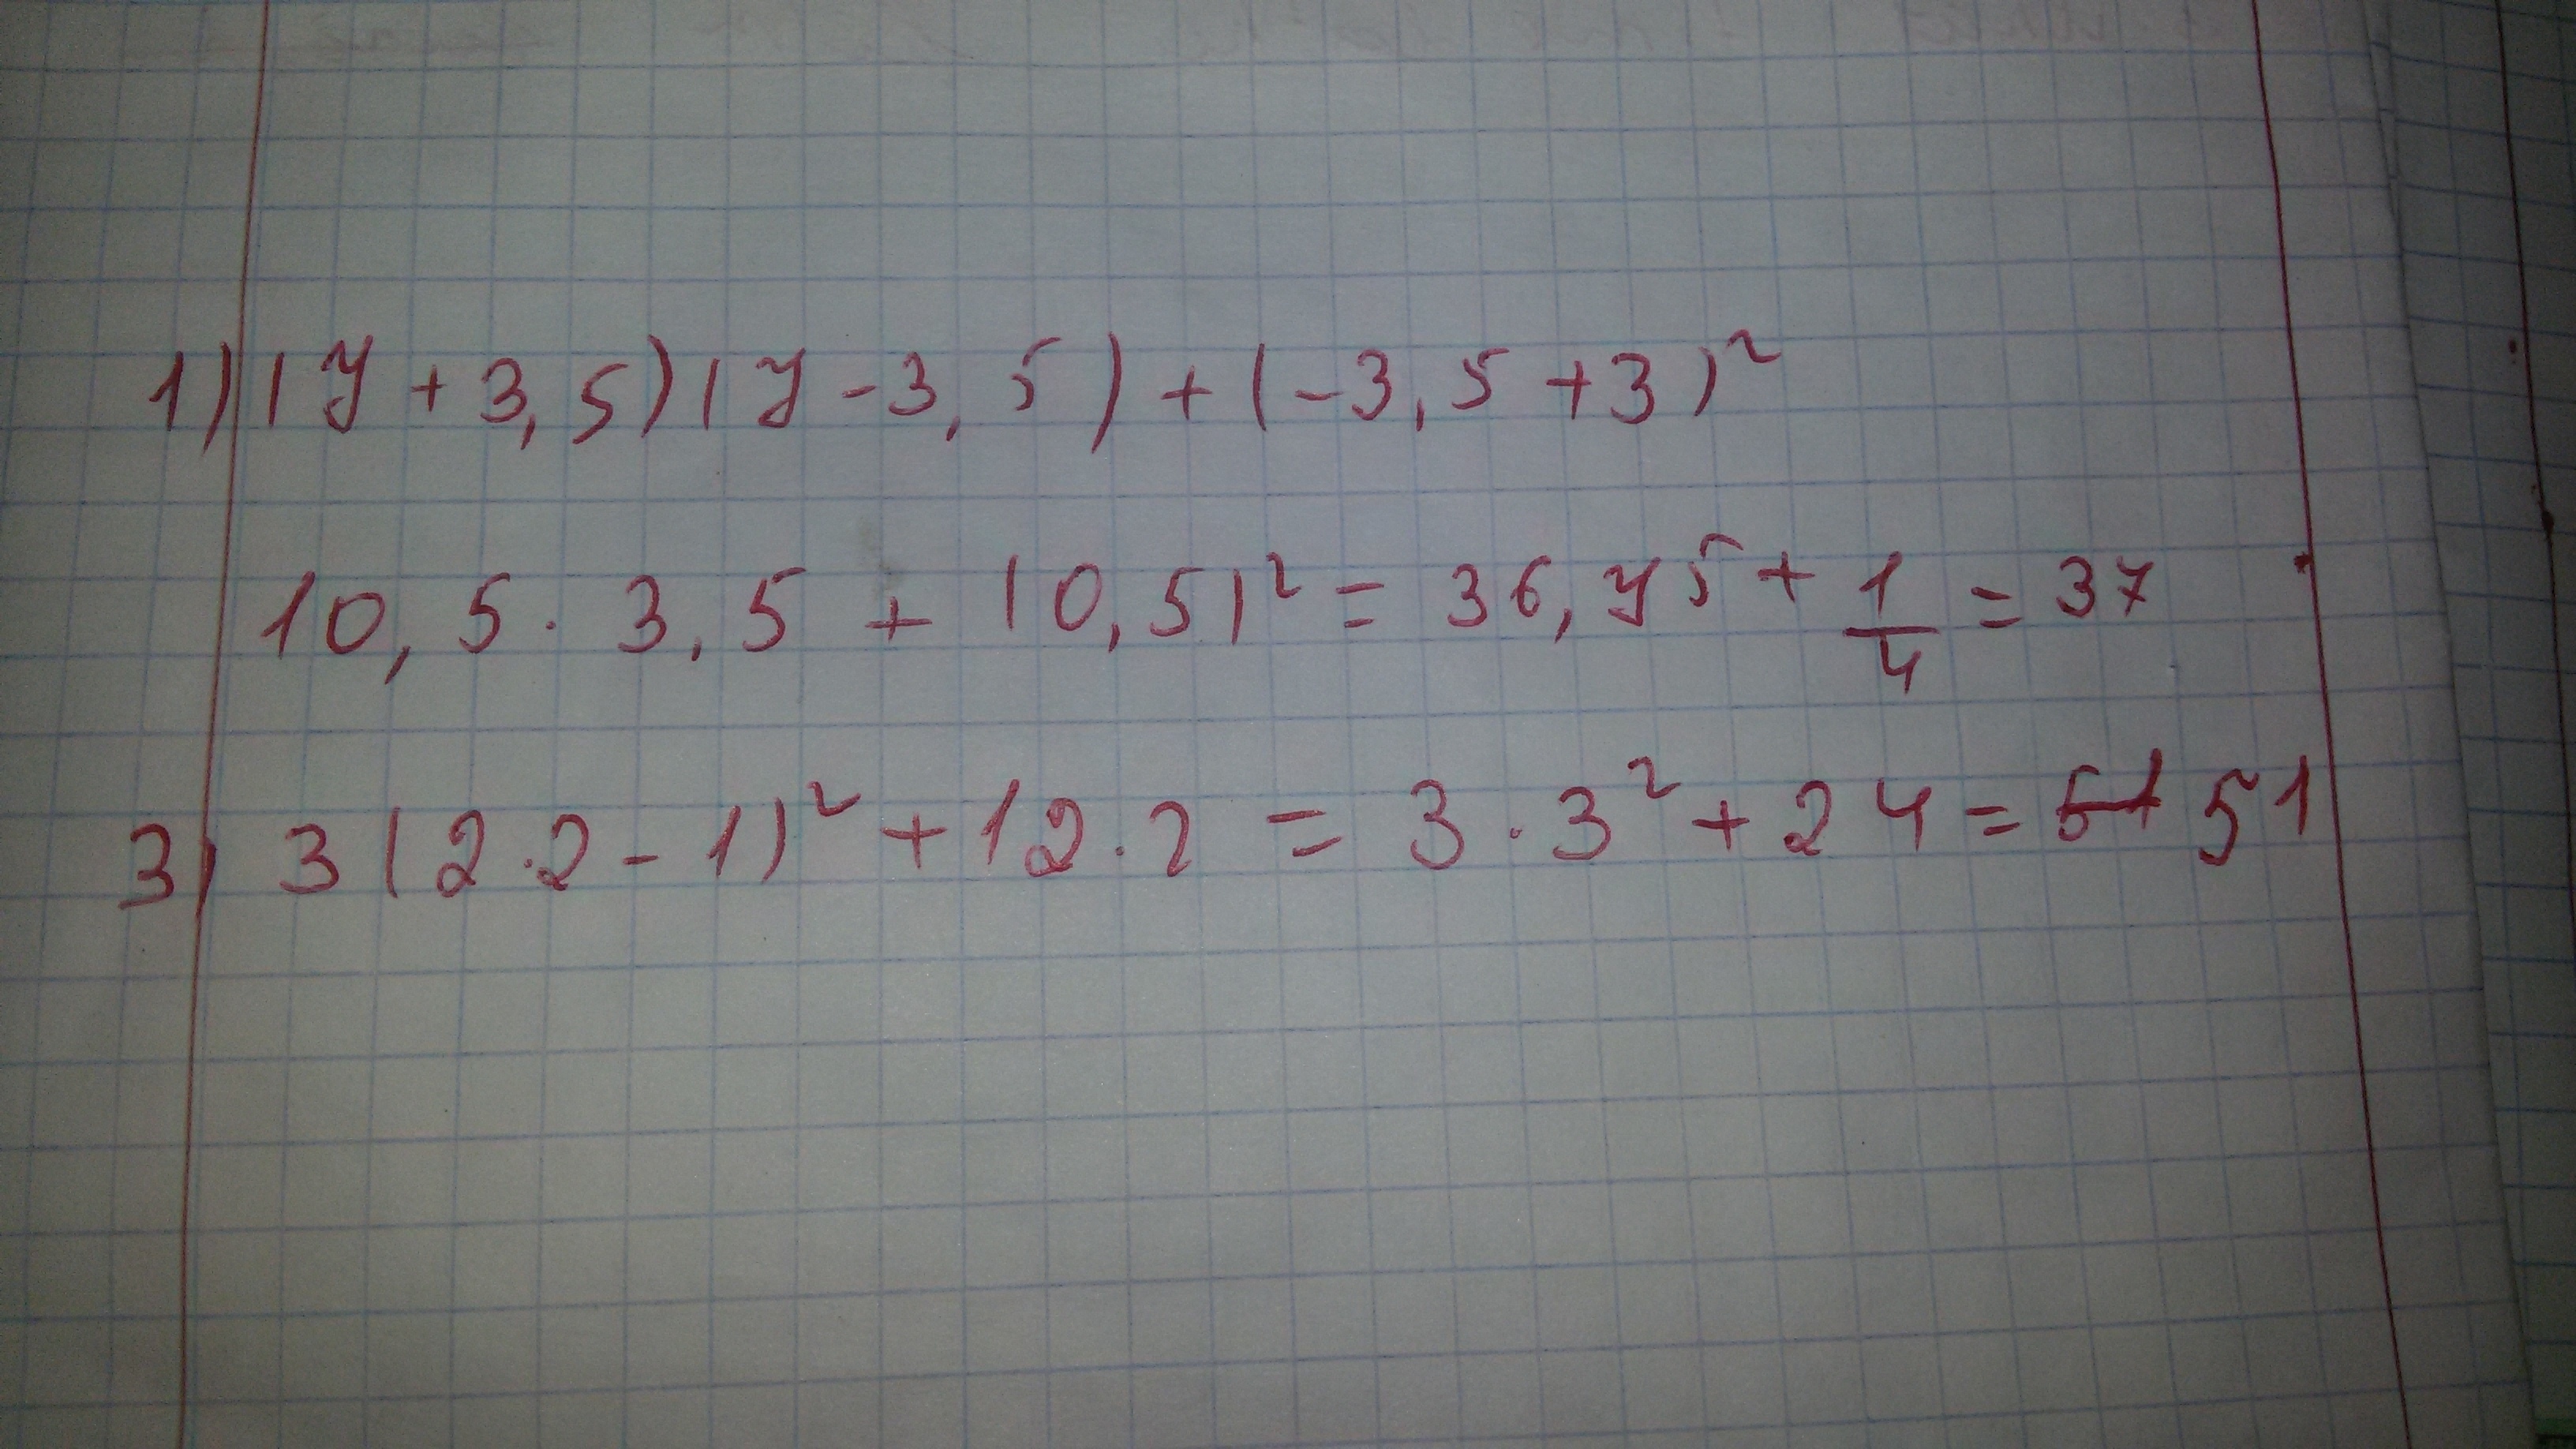 1) (7 + 3,5)(7 - 3,5) + (-3,5 + 3)²
10,5 · 3,5 + (0,5)² = 36,75 + 1/4 = 37
3) 3(2·2 - 1)² + 12·2 = 3·3² + 24 = 51 51